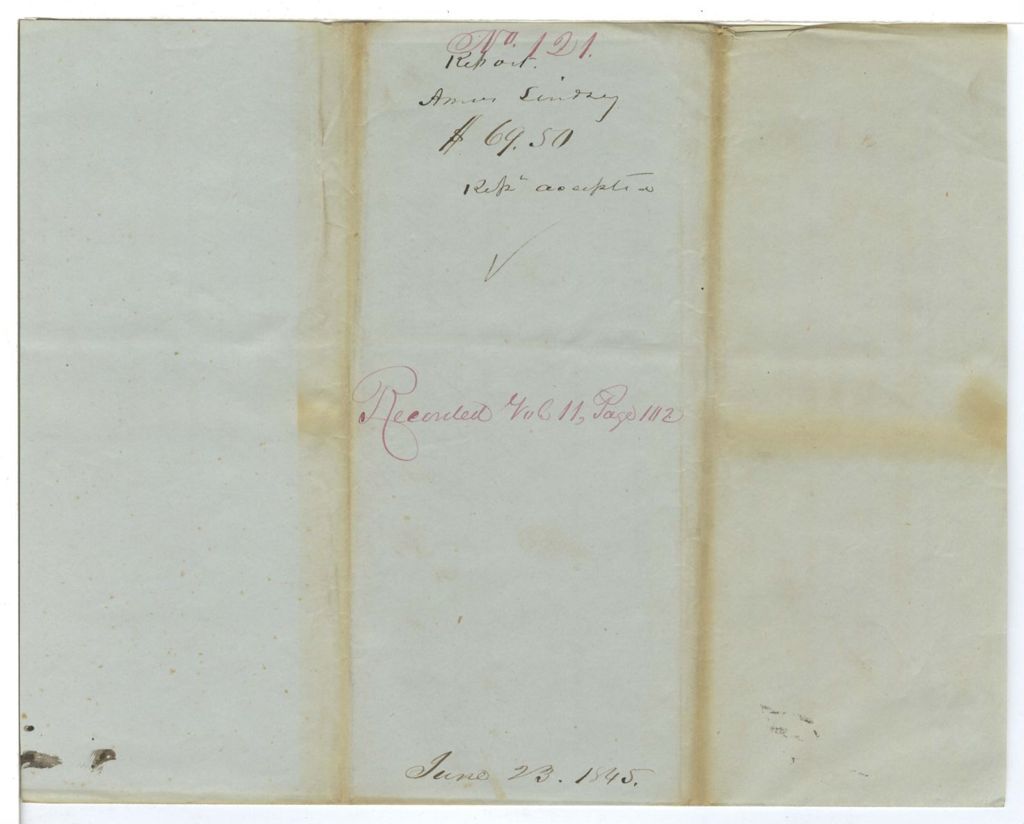 No. 121.
Report.
Amos Lindsey
$ 69.50
Rept accepted
Recorded Vol 11, Page 112
June 23. 1845.